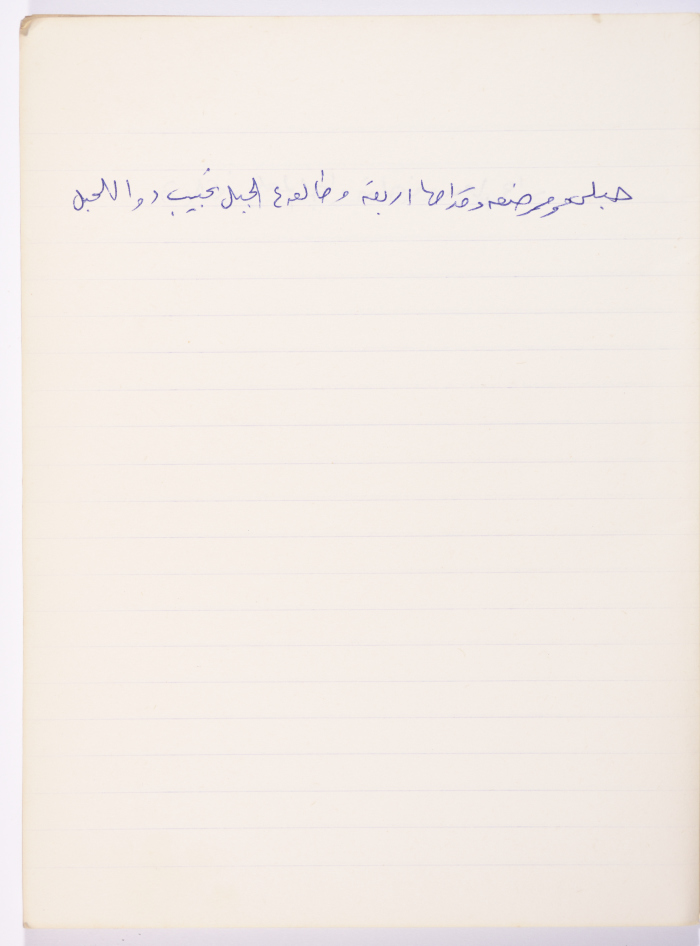 حبلى ومرضعه وقدامها اربعة وطالعه ع الجبل تجيب دوا للحبل